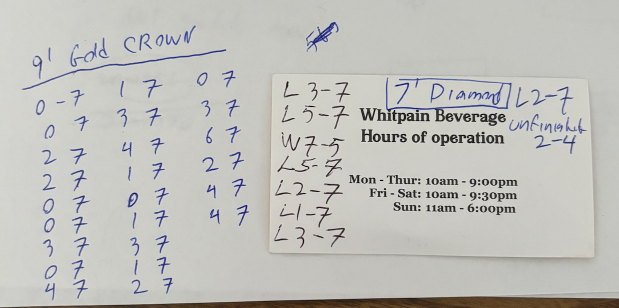 9' Gold CROWN
0-7 1 7 0 7
0 7 3 7 3 7
2 7 4 7 6 7
2 7 1 7 2 7
0 7 0 7 4 7
0 7 1 7 4 7
3 7 3 7
0 7 1 7
4 7 2 7
7' Diamond
L 3-7
L 5-7
W 7-5
L 5-7
L 2-7
L 1-7
L 3-7
L 2-7
unfinished
2-4
Whitpain Beverage
Hours of operation
Mon - Thur: 10am - 9:00pm
Fri - Sat: 10am - 9:30pm
Sun: 11am - 6:00pm